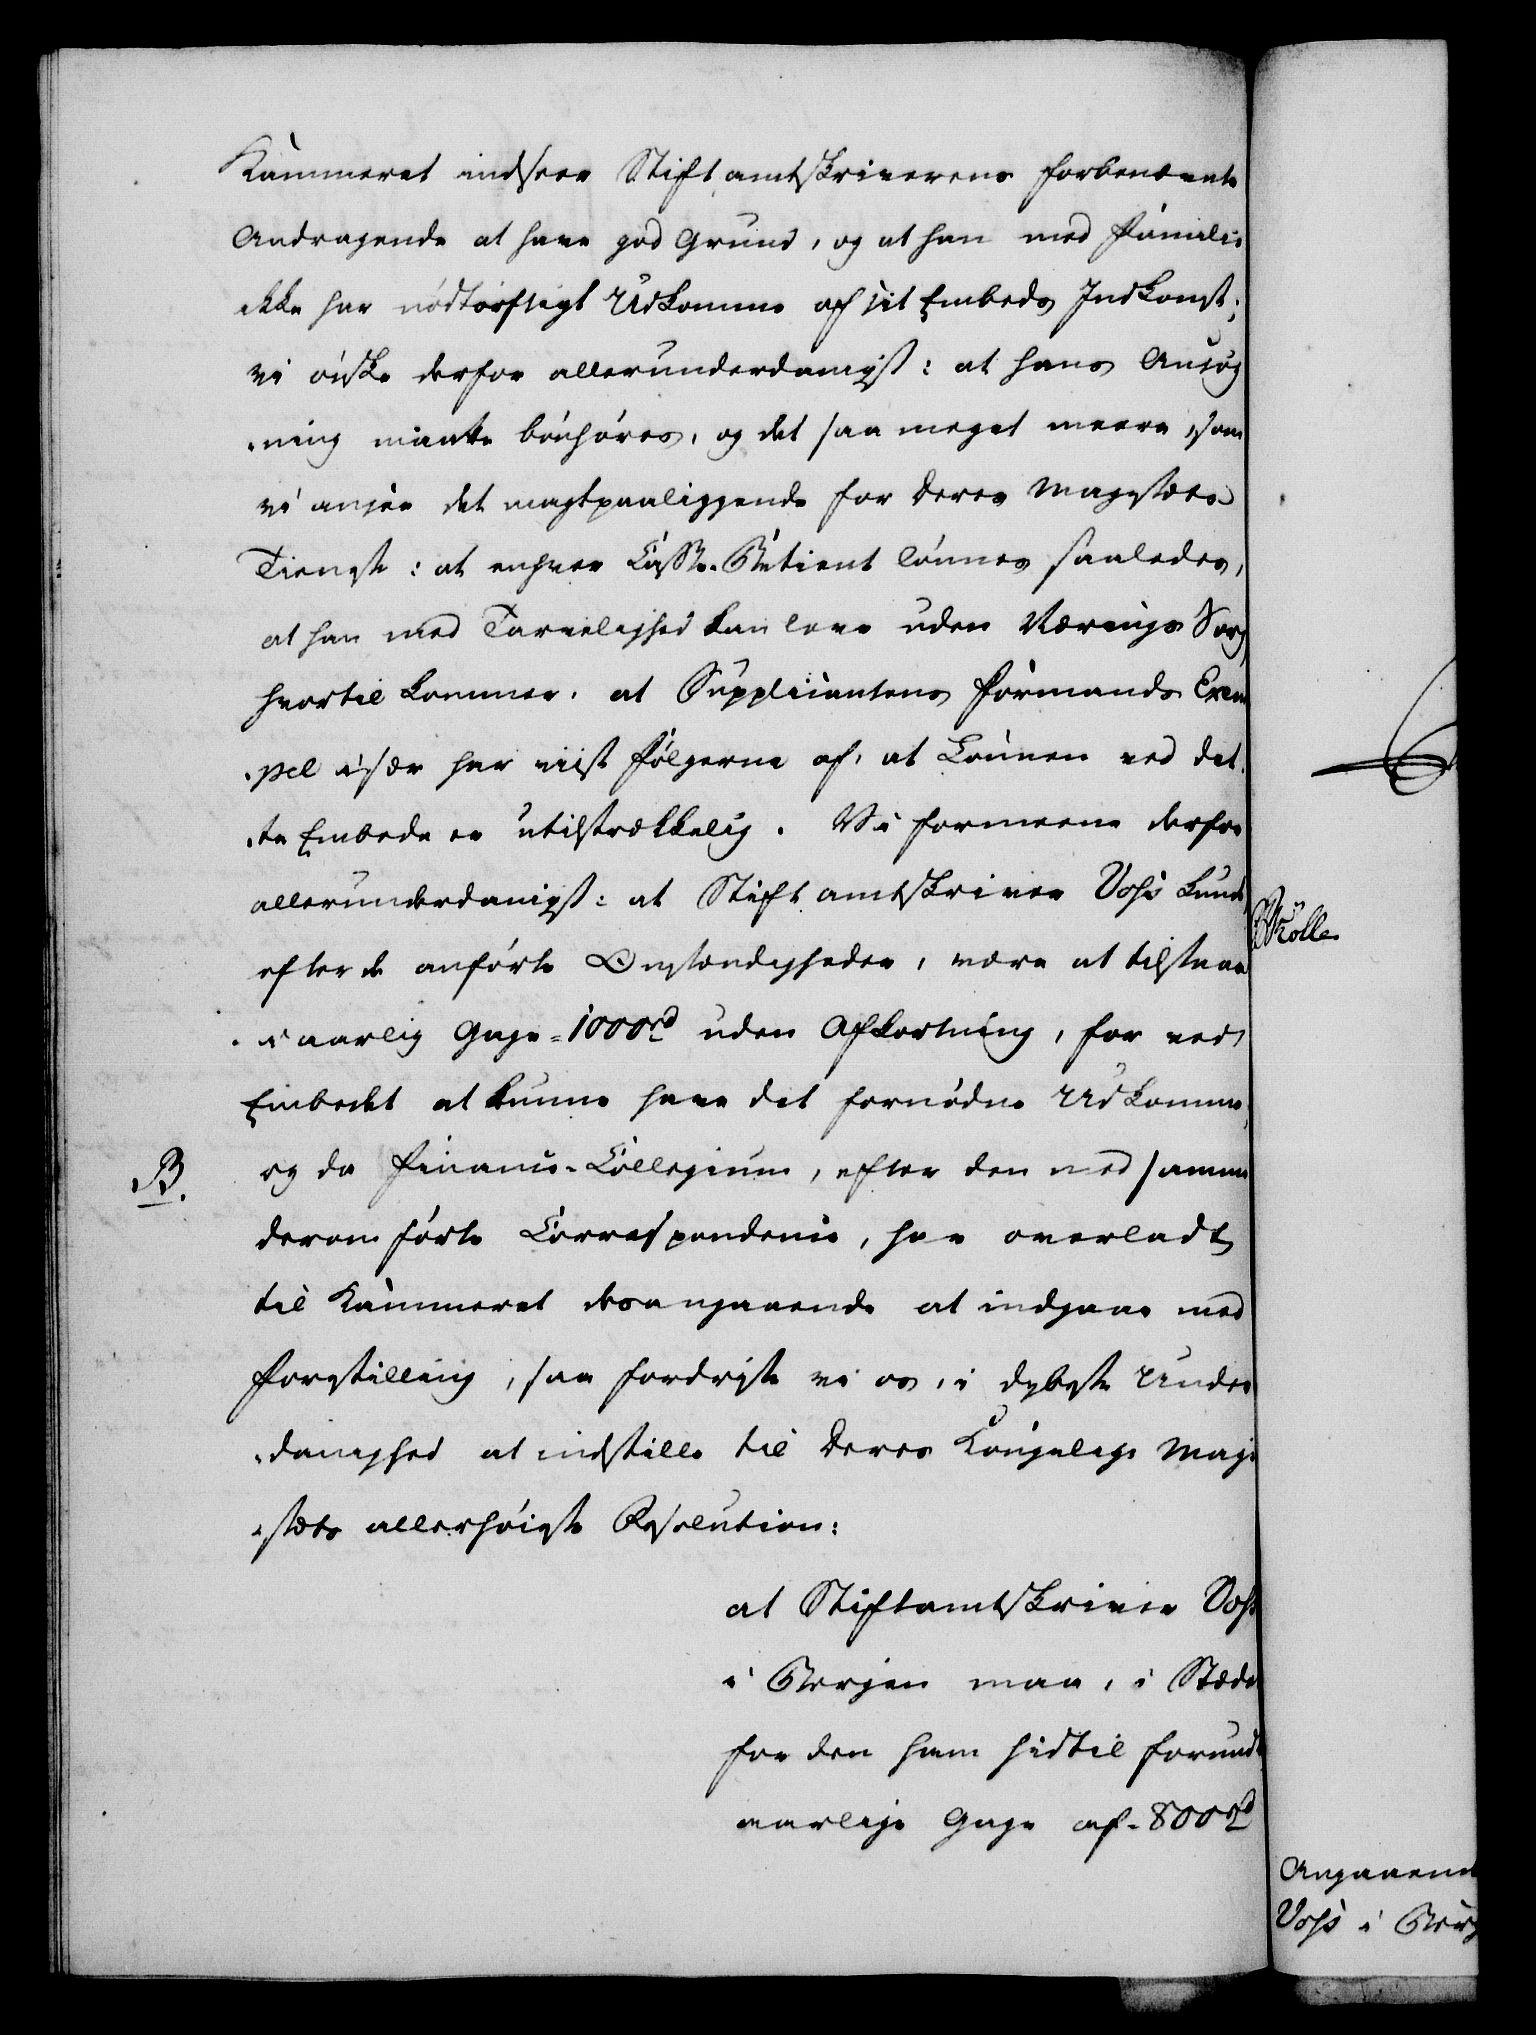 Kammeret indseer Stiftamtskriverens forbenævnte
Andragende at have god Grund, og at han med Familie
ikke har nödtörftigt Udkomme af sit Embeds Indkomst;
vi önske derfor allerunderdanigst: at hans Ansög
-ning maatte bönhöres, og det saa meget meere, som
vi ansee det magtpaaliggende for Deres Majestæts
Tieneste: at enhver Casse-Betient lönnes saaledes,
at han med Tarvelighed kan leve uden Nærings Sorg,
hvortil kommer, at Supplicantens Formands Exem
-pel især har viist Fölgerne af, at Lönnen ved det
-te Embede er utilstrækkelig. Vi formeene derfor
allerunderdanigst: at Stiftamtskriver Voss kunde,
efter de anförte Omstændigheder, være at tilstaae
i aarlig Gage - 1000 rd uden Afkortning, for ved
Embedet at kunne have det fornödne Udkomme,
B. og da Finanz-Collegium, efter den med samme
derom förte Correspondence, har overladt
til Kammeret desangaaende at indgaae med
Forestilling, saa fordriste vi os, i dybeste Under
-danighed at indstille til Deres Kongelige Maje
-stæts allerhöieste Resolution:
at Stiftamtskriver Voss
i Bergen maa, i Stæde
for den ham hidtil forundte
aarlige Gage af - 800 rd
Angaaende
Voss i Berg